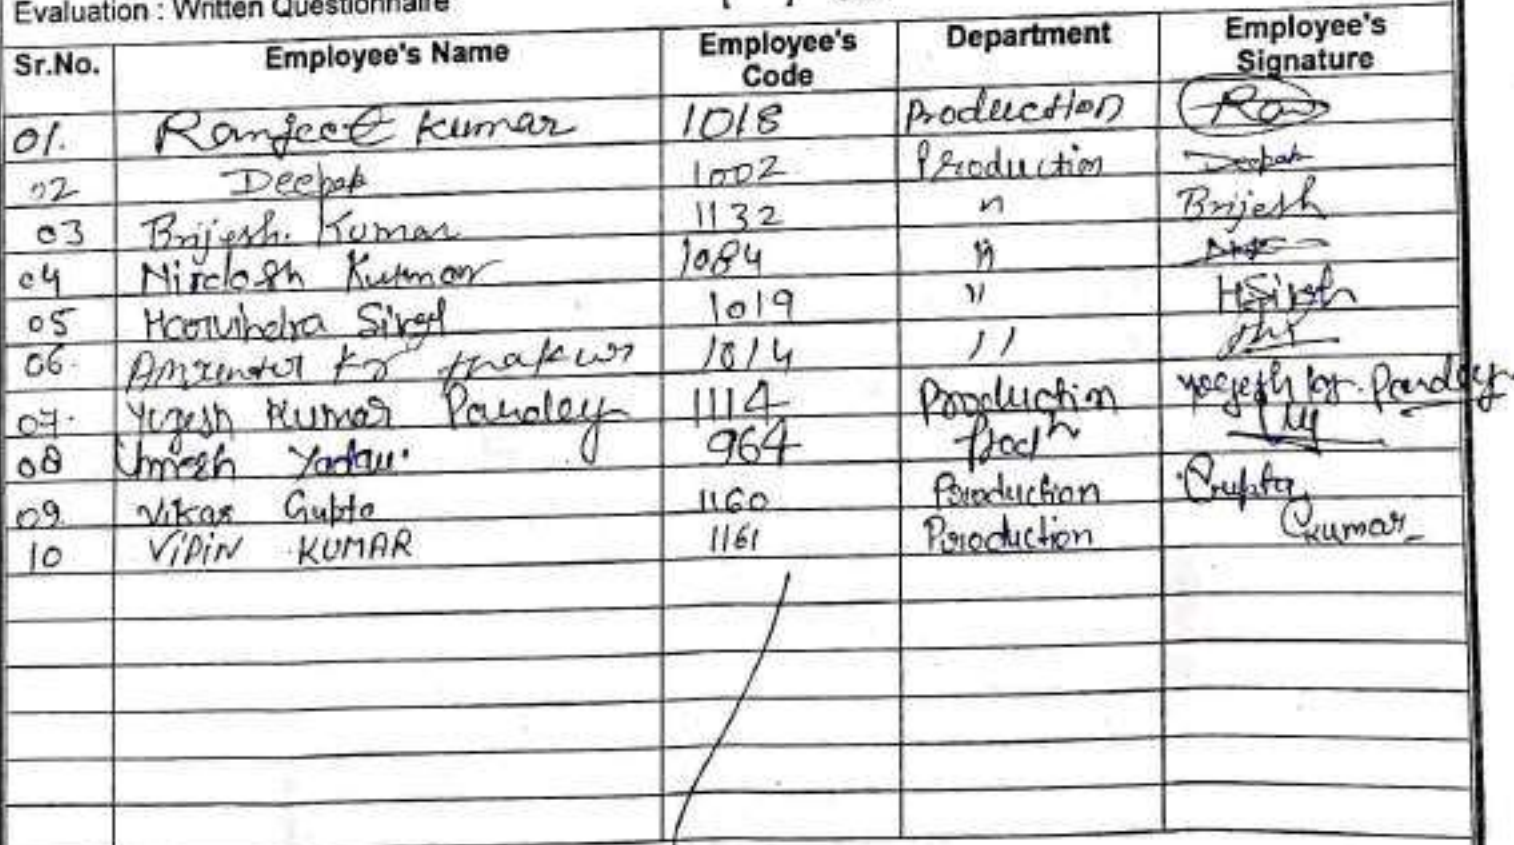 Evaluation : Written Questionnaire
Sr.No. Employee's Name Employee's Code Department Employee's Signature
01. Ranjeet Kumar 1018 Production
02 Deepak 1002 Production Deepak
03 Brijesh Kumar 1132 " Brijesh
04 Nirdosh Kumar 1084 "
05 Harvindra Singh 1019 " HSingh
06. Kr Thakur 1014 "
07. Yogesh Kumar Pandey 1114 Production Yogesh Kr. Pandey
08 Umesh Yadav 964 Prodn
09 Vikas Gupta 1160 Production Gupta
10 VIPIN KUMAR 1161 Production Kumar